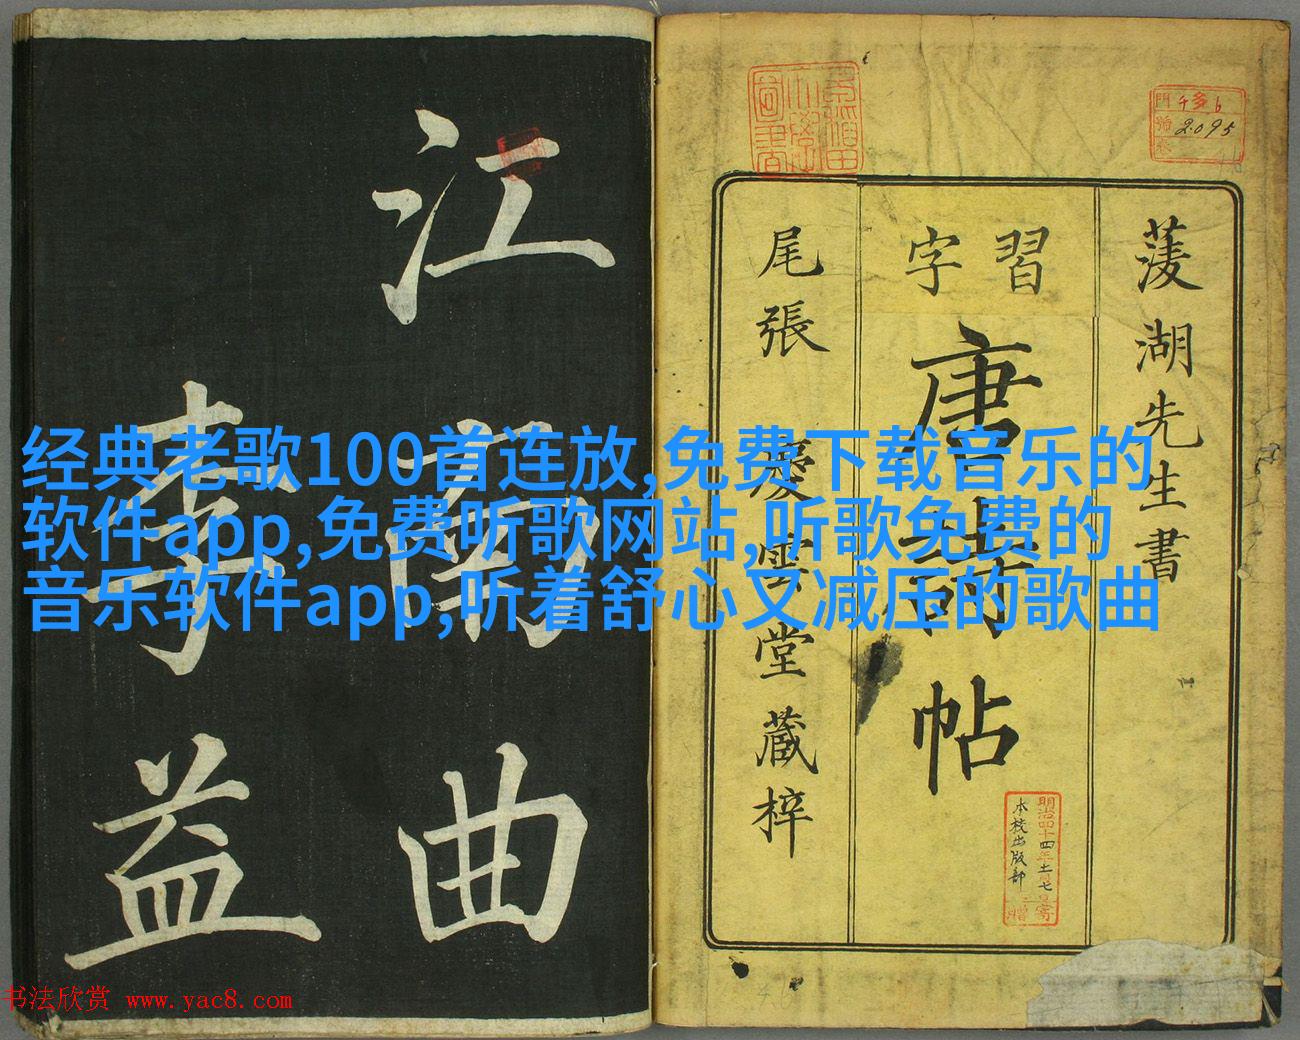 江南曲
李益
菱湖先生書
習字
唐詩帖
尾張 慶雲堂藏梓
早稲田大學圖書
門 チ多6
號 2095
卷
明治四十四年十一月七日
本校出版部
寄贈
经典老歌100首连放,免费下载音乐的
软件app,免费听歌网站,听歌免费的
音乐软件app,听着舒心又减压的歌曲
书法欣赏 www.yac8.com